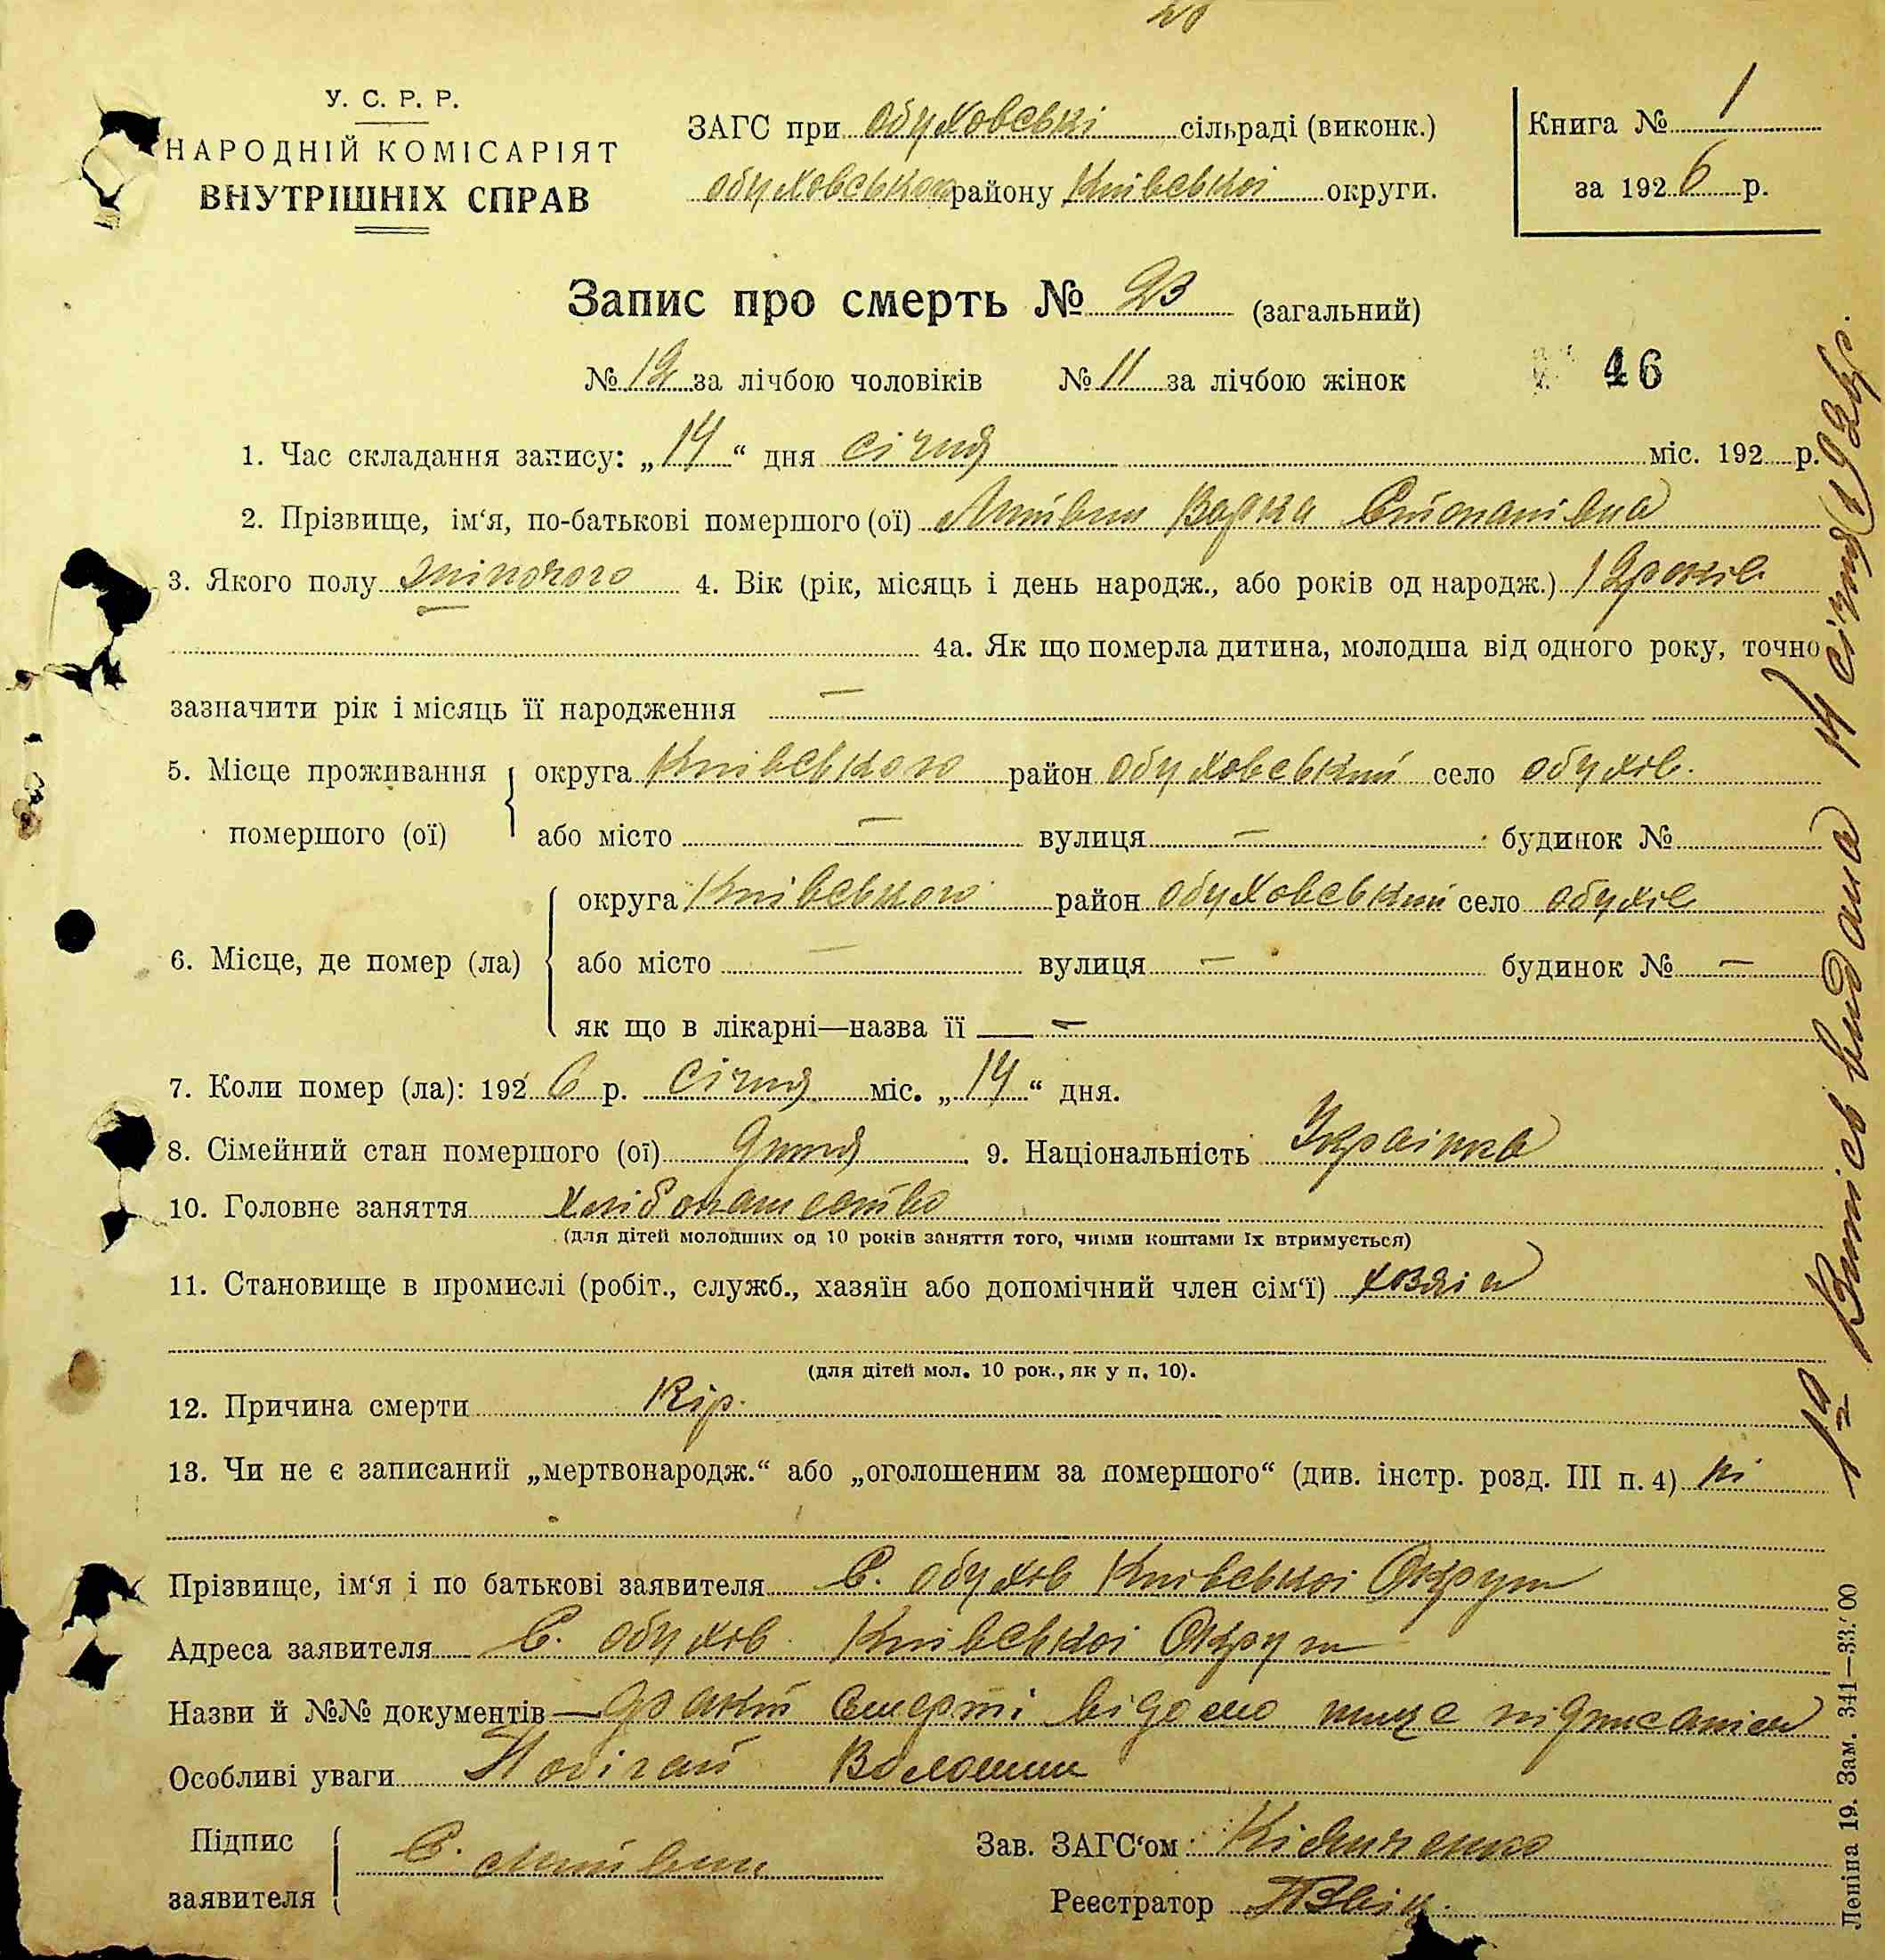 У. С. Р. Р.
НАРОДНІЙ КОМІСАРІЯТ
ВНУТРІШНІХ СПРАВ
ЗАГС при обуховські сільраді (виконк.)
обуховського району Київської округи.
Книга № 1
за 1926 р.
Запис про смерть № 23 (загальний)
№ 12 за лічбою чоловіків № 11 за лічбою жінок
46
1. Час складання запису: „14“ дня січня міс. 192 р.
2. Прізвище, ім‘я, по-батькові помершого (ої) Литвин Варка Степанівна
3. Якого полу жіночого 4. Вік (рік, місяць і день народж., або років од народж.) 12 років
4а. Як що померла дитина, молодша від одного року, точно
зазначити рік і місяць її народження —
5. Місце проживання помершого (ої) округа Київського район обуховський село обухів.
або місто — вулиця — будинок №
6. Місце, де помер (ла) округа Київського район обуховський село обухів
або місто — вулиця — будинок № —
як що в лікарні—назва її —
7. Коли помер (ла): 1926 р. січня міс. „14“ дня.
8. Сімейний стан помершого (ої) дитя 9. Національність Українка
10. Головне заняття хлібопашество
(для дітей молодших од 10 років заняття того, чиіми коштами їх втримується)
11. Становище в промислі (робіт., служб., хазяїн або допомічний член сім‘ї) хозяін
(для дітей мол. 10 рок., як у п. 10).
12. Причина смерти Кір.
13. Чи не є записаний „мертвонародж.“ або „оголошеним за помершого“ (див. інстр. розд. III п. 4) ні
Прізвище, ім‘я і по батькові заявителя С. обухів Київської Округи
Адреса заявителя С. обухів Київської Округи
Назви й №№ документів — факт смерті відомо нижче підписанім
Особливі уваги Волошин
Підпис заявителя С. Литвин
Зав. ЗАГС‘ом:
Реєстратор
Витісь видана 14 січня 1926 р.
Леніна 19. Зам. 341—33.′00